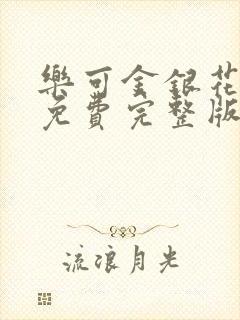 樂可金銀花
免費完整版
流浪月光